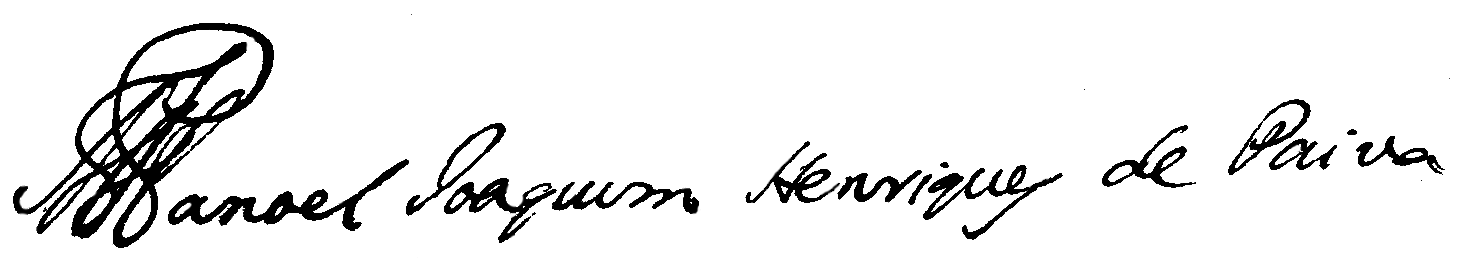 Manoel Joaquim Henriques de Paiva